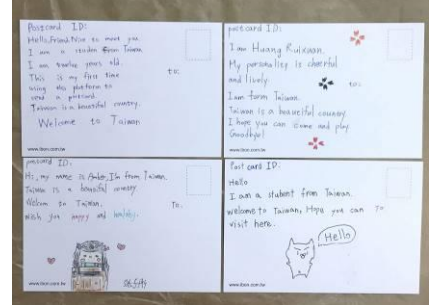 Postcard ID:
Hello, friend. Nice to meet you.
I am a studen from Taiwan
I am twelve years old.
This is my first time
using this platform to
send a postcard.
Taiwan is a beautiful country.
Welcome to Taiwan
to:
www.ibon.com.tw
postcard ID:
I am Huang Ruixuan.
My personality is cheerful
and lively.
to:
I am form Taiwan.
Taiwan is a beautiful country
I hope you can come and play
Goodbye!
www.ibon.com.tw
postcard ID:
Hi, my name is I'm from Taiwan.
Taiwan is a beautiful country.
Welcom to Taiwan.
To:
wish you happy and healthy.
www.ibon.com.tw
Post card ID:
Hello
I am a student from Taiwan.
welcome to Taiwan, Hope you can
To
visit here.
Hello
www.ibon.com.tw